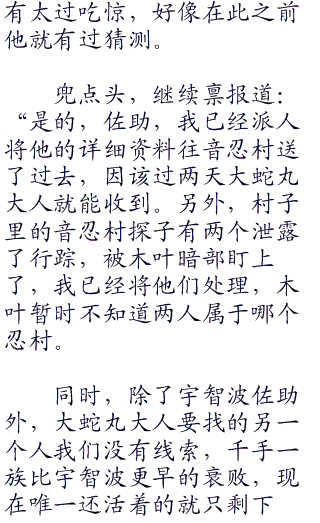 有太过吃惊，好像在此之前
他就有过猜测。
兜点头，继续禀报道：
“是的，佐助，我已经派人
将他的详细资料往音忍村送
了过去，因该过两天大蛇丸
大人就能收到。另外，村子
里的音忍村探子有两个泄露
了行踪，被木叶暗部盯上
了，我已经将他们处理，木
叶暂时不知道两人属于哪个
忍村。
同时，除了宇智波佐助
外，大蛇丸大人要找的另一
个人我们没有线索，千手一
族比宇智波更早的衰败，现
在唯一还活着的就只剩下